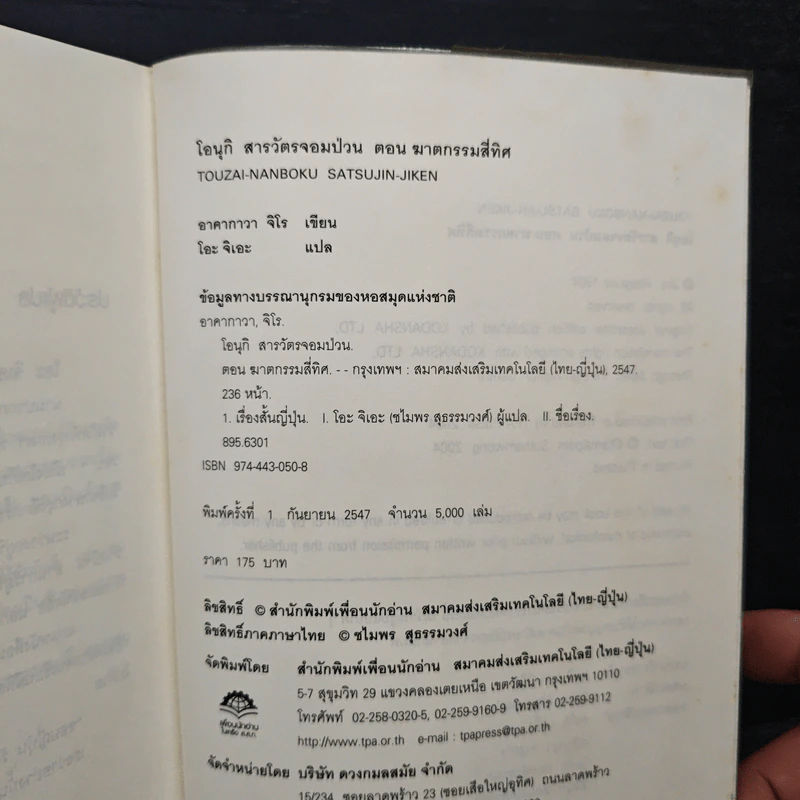 โอนุกิ สารวัตรจอมป่วน ตอน ฆาตกรรมสี่ทิศ
TOUZAI-NANBOKU SATSUJIN-JIKEN
อาคากาวา จิโร เขียน
โอะ จิเอะ แปล
ข้อมูลทางบรรณานุกรมของหอสมุดแห่งชาติ
อาคากาวา, จิโร.
โอนุกิ สารวัตรจอมป่วน.
ตอน ฆาตกรรมสี่ทิศ. - - กรุงเทพฯ : สมาคมส่งเสริมเทคโนโลยี (ไทย-ญี่ปุ่น), 2547.
236 หน้า.
1. เรื่องสั้นญี่ปุ่น. I. โอะ จิเอะ (ชไมพร สุธรรมวงศ์) ผู้แปล. II. ชื่อเรื่อง.
895.6301
ISBN 974-443-050-8
พิมพ์ครั้งที่ 1 กันยายน 2547 จำนวน 5,000 เล่ม
ราคา 175 บาท
ลิขสิทธิ์ © สำนักพิมพ์เพื่อนนักอ่าน สมาคมส่งเสริมเทคโนโลยี (ไทย-ญี่ปุ่น)
ลิขสิทธิ์ภาคภาษาไทย © ชไมพร สุธรรมวงศ์
จัดพิมพ์โดย สำนักพิมพ์เพื่อนนักอ่าน สมาคมส่งเสริมเทคโนโลยี (ไทย-ญี่ปุ่น)
5-7 สุขุมวิท 29 แขวงคลองเตยเหนือ เขตวัฒนา กรุงเทพฯ 10110
โทรศัพท์ 02-258-0320-5, 02-259-9160-9 โทรสาร 02-259-9112
http://www.tpa.or.th e-mail : tpapress@tpa.or.th
เพื่อนนักอ่าน
ในเครือ ส.ส.ท.
จัดจำหน่ายโดย บริษัท ดวงกมลสมัย จำกัด
15/234 ซอยลาดพร้าว 23 (ซอยเสือใหญ่อุทิศ) ถนนลาดพร้าว